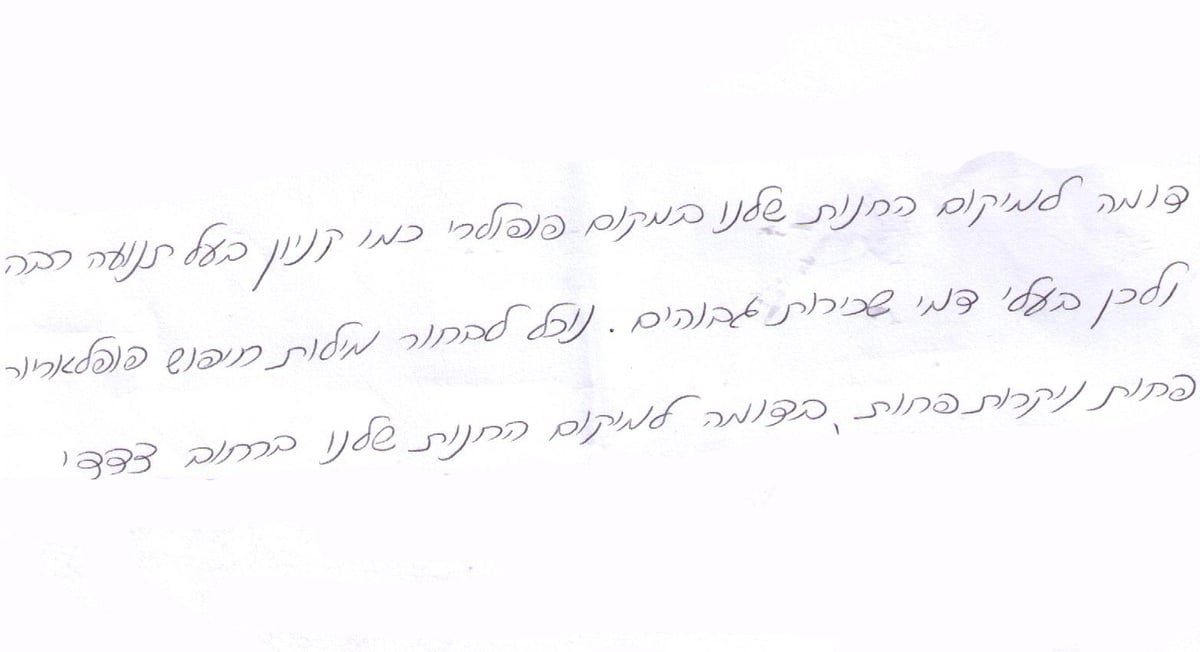 דומה למיקום החנות שלנו במקום פופולרי כמו קניון בעל תנועה רבה
ולכן בעלי דמי שכירות גבוהים. נוכל לבחור מילות חיפוש פופלאריור
פחות ויקרות פחות, בדומה למיקום החנות שלנו ברחוב צדדי